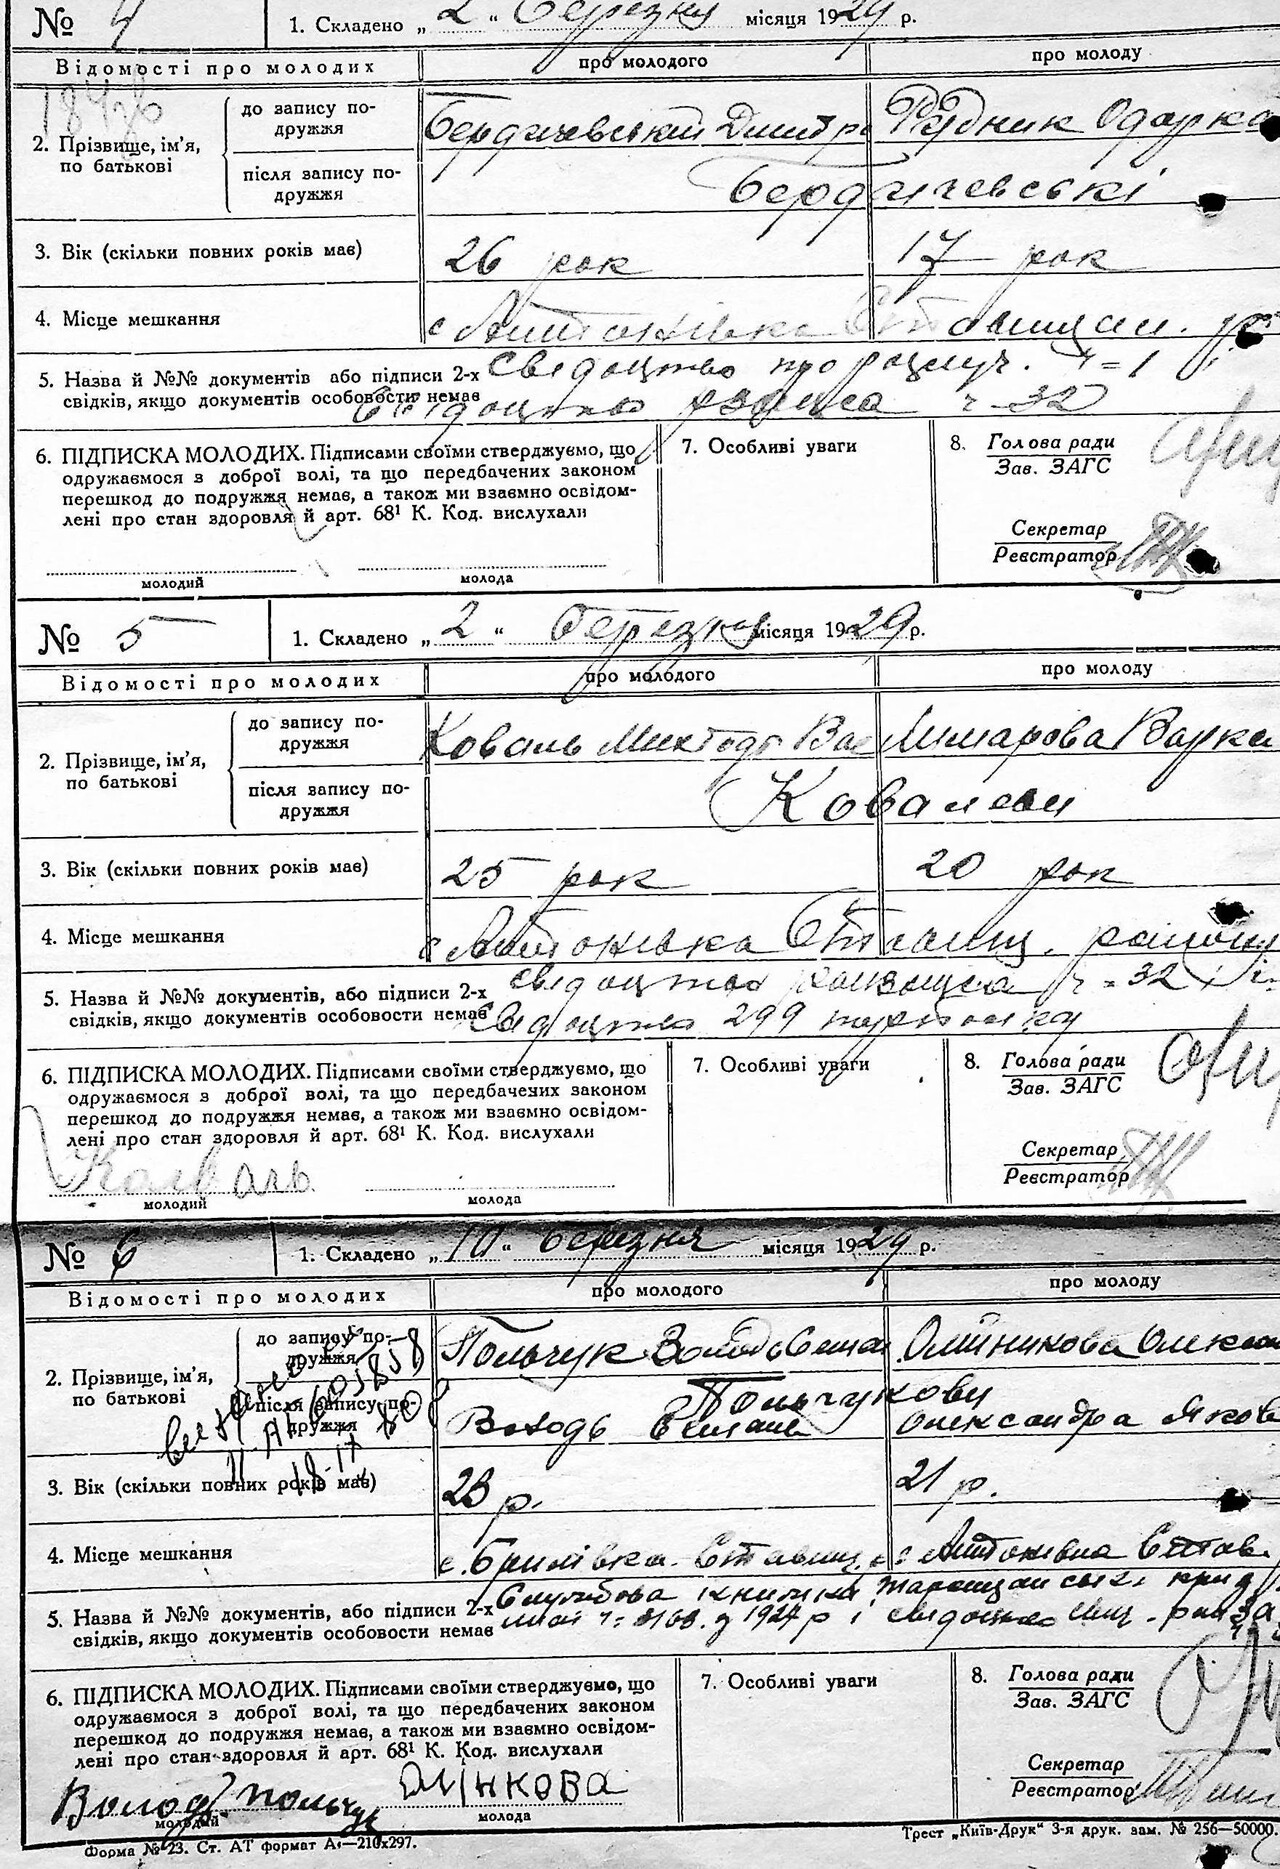 № 4 1. Складено „ 2 “ березня місяця 1929 р.
Відомості про молодих про молодого про молоду
2. Прізвище, ім'я, по батькові
до запису подружжя Бердичевський Дмитро Рудник Одарка
після запису подружжя Бердичевські
3. Вік (скільки повних років має) 26 рок 17 рок
4. Місце мешкання с Антонівка Ставищан.
5. Назва й №№ документів або підписи 2-х Свідоцтво про розлуч. ч=1
свідків, якщо документів особовости немає Свідоцтво ч-32
6. ПІДПИСКА МОЛОДИХ. Підписами своїми стверджуємо, що 7. Особливі уваги 8. Голова ради
одружаємося з доброї волі, та що передбачених законом Зав. ЗАГС
перешкод до подружжя немає, а також ми взаємно освідом-
лені про стан здоровля й арт. 68¹ К. Код. вислухали Секретар
Реєстратор
молодий молода
№ 5 1. Складено „ 2 “ березня місяця 1929 р.
Відомості про молодих про молодого про молоду
2. Прізвище, ім'я, по батькові
до запису подружжя Коваль Вас Лимарова Варка
після запису подружжя Ковалеви
3. Вік (скільки повних років має) 25 рок 20 рок
4. Місце мешкання с Антонівка Ставищ. району
5. Назва й №№ документів, або підписи 2-х свідоцтво ч=32
свідків, якщо документів особовости немає Свідоцтво 299
6. ПІДПИСКА МОЛОДИХ. Підписами своїми стверджуємо, що 7. Особливі уваги 8. Голова ради
одружаємося з доброї волі, та що передбачених законом Зав. ЗАГС
перешкод до подружжя немає, а також ми взаємно освідом-
лені про стан здоровля й арт. 68¹ К. Код. вислухали Секретар
Реєстратор
молодий молода
№ 6 1. Складено „ 10 “ березня місяця 1929 р.
Відомості про молодих про молодого про молоду
2. Прізвище, ім'я, по батькові
до запису подружжя Польчук Олійникова
Польчукови
після запису подружжя Олександра Яков
3. Вік (скільки повних років має) 23 р. 21 р.
4. Місце мешкання с. Бринівка Ставищ. с Антонівка Став.
Службова книжка
5. Назва й №№ документів, або підписи 2-х 1927 р і свідоцтво
свідків, якщо документів особовости немає
6. ПІДПИСКА МОЛОДИХ. Підписами своїми стверджуємо, що 7. Особливі уваги 8. Голова ради
одружаємося з доброї волі, та що передбачених законом Зав. ЗАГС
перешкод до подружжя немає, а також ми взаємно освідом-
лені про стан здоровля й арт. 68¹ К. Код. вислухали Секретар
Реєстратор
молодий молода
Форма № 23. Ст. АТ формат А₄—210×297. Трест „Київ-Друк“ 3-я друк. зам. № 256—50000.